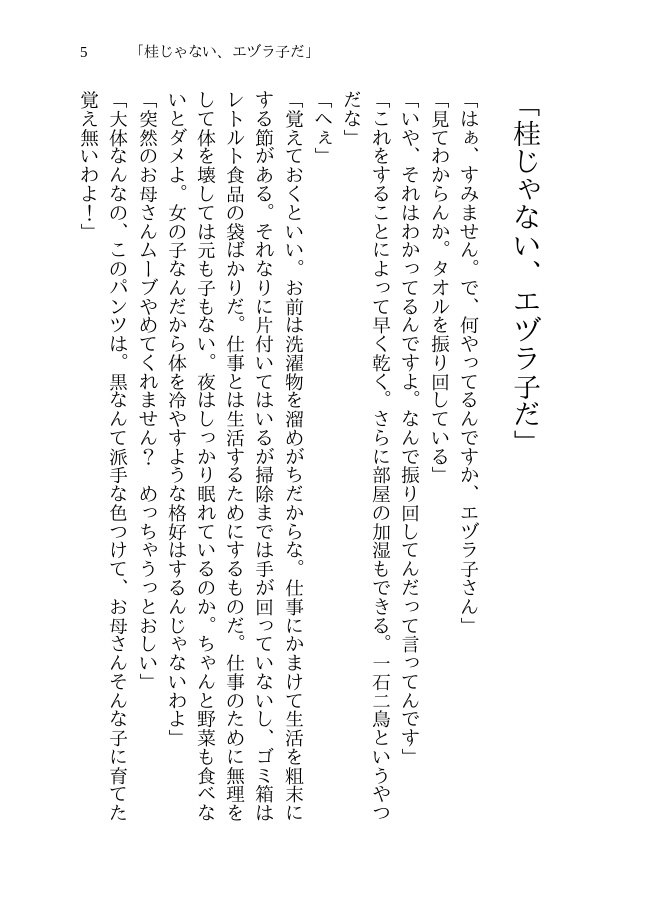 5 「桂じゃない、エヅラ子だ」
「桂じゃない、エヅラ子だ」
「はぁ、すみません。で、何やってるんですか、エヅラ子さん」
「見てわからんか。タオルを振り回している」
「いや、それはわかってるんですよ。なんで振り回してんだって言ってんです」
「これをすることによって早く乾く。さらに部屋の加湿もできる。一石二鳥というやつ
だな」
「へぇ」
「覚えておくといい。お前は洗濯物を溜めがちだからな。仕事にかまけて生活を粗末に
する節がある。それなりに片付いてはいるが掃除までは手が回っていないし、ゴミ箱は
レトルト食品の袋ばかりだ。仕事とは生活するためにするものだ。仕事のために無理を
して体を壊しては元も子もない。夜はしっかり眠れているのか。ちゃんと野菜も食べな
いとダメよ。女の子なんだから体を冷やすような格好はするんじゃないわよ」
「突然のお母さんムーブやめてくれません？　めっちゃうっとおしい」
「大体なんなの、このパンツは。黒なんて派手な色つけて、お母さんそんな子に育てた
覚え無いわよ！」